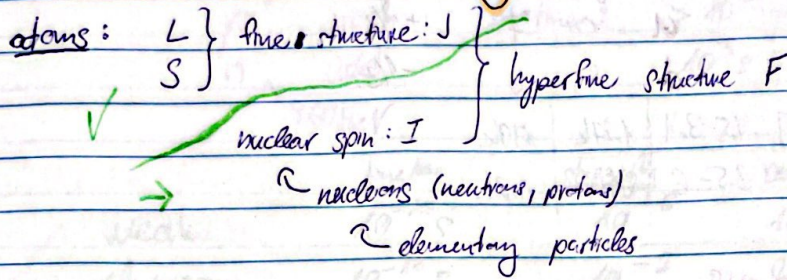 atoms: L } fine structure: J
S
hyperfine structure F
nuclear spin: I
nucleons (neutrons, protons)
elementary particles